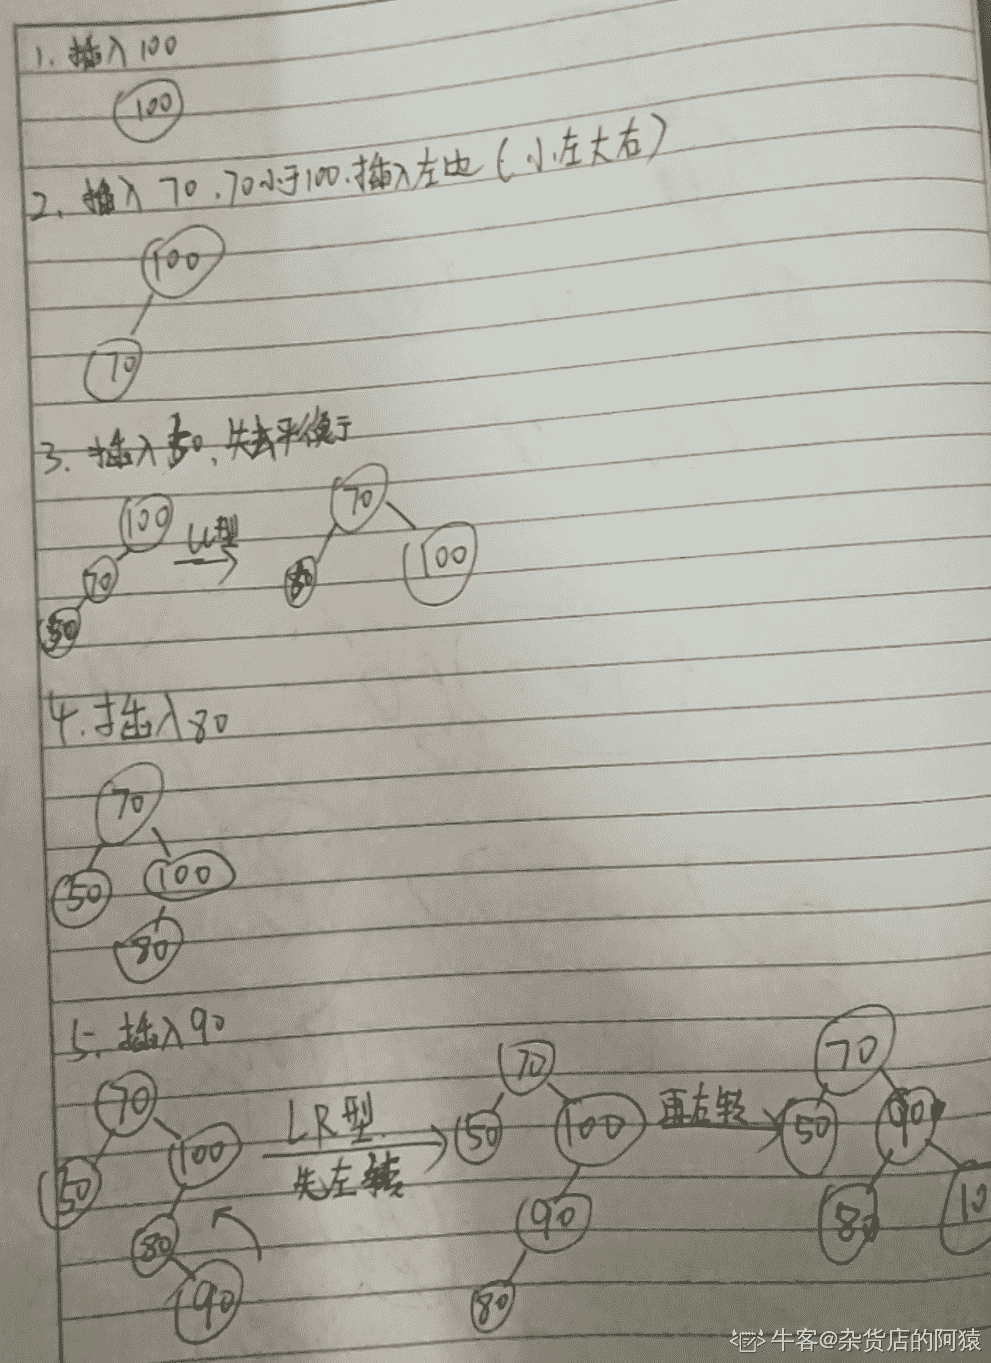 1. 插入100
100
2. 插入 70 , 70小于100, 插入左边 ( 小左大右 )
100
70
3. 插入50, 失去平衡了
100
LL型
70
70
50
50
100
4. 插入80
70
50
100
80
5. 插入90
70
50
100
80
90
LR型.
先左转
70
50
100
90
80
再左转
70
50
90
80
10
牛客@杂货店的阿猿